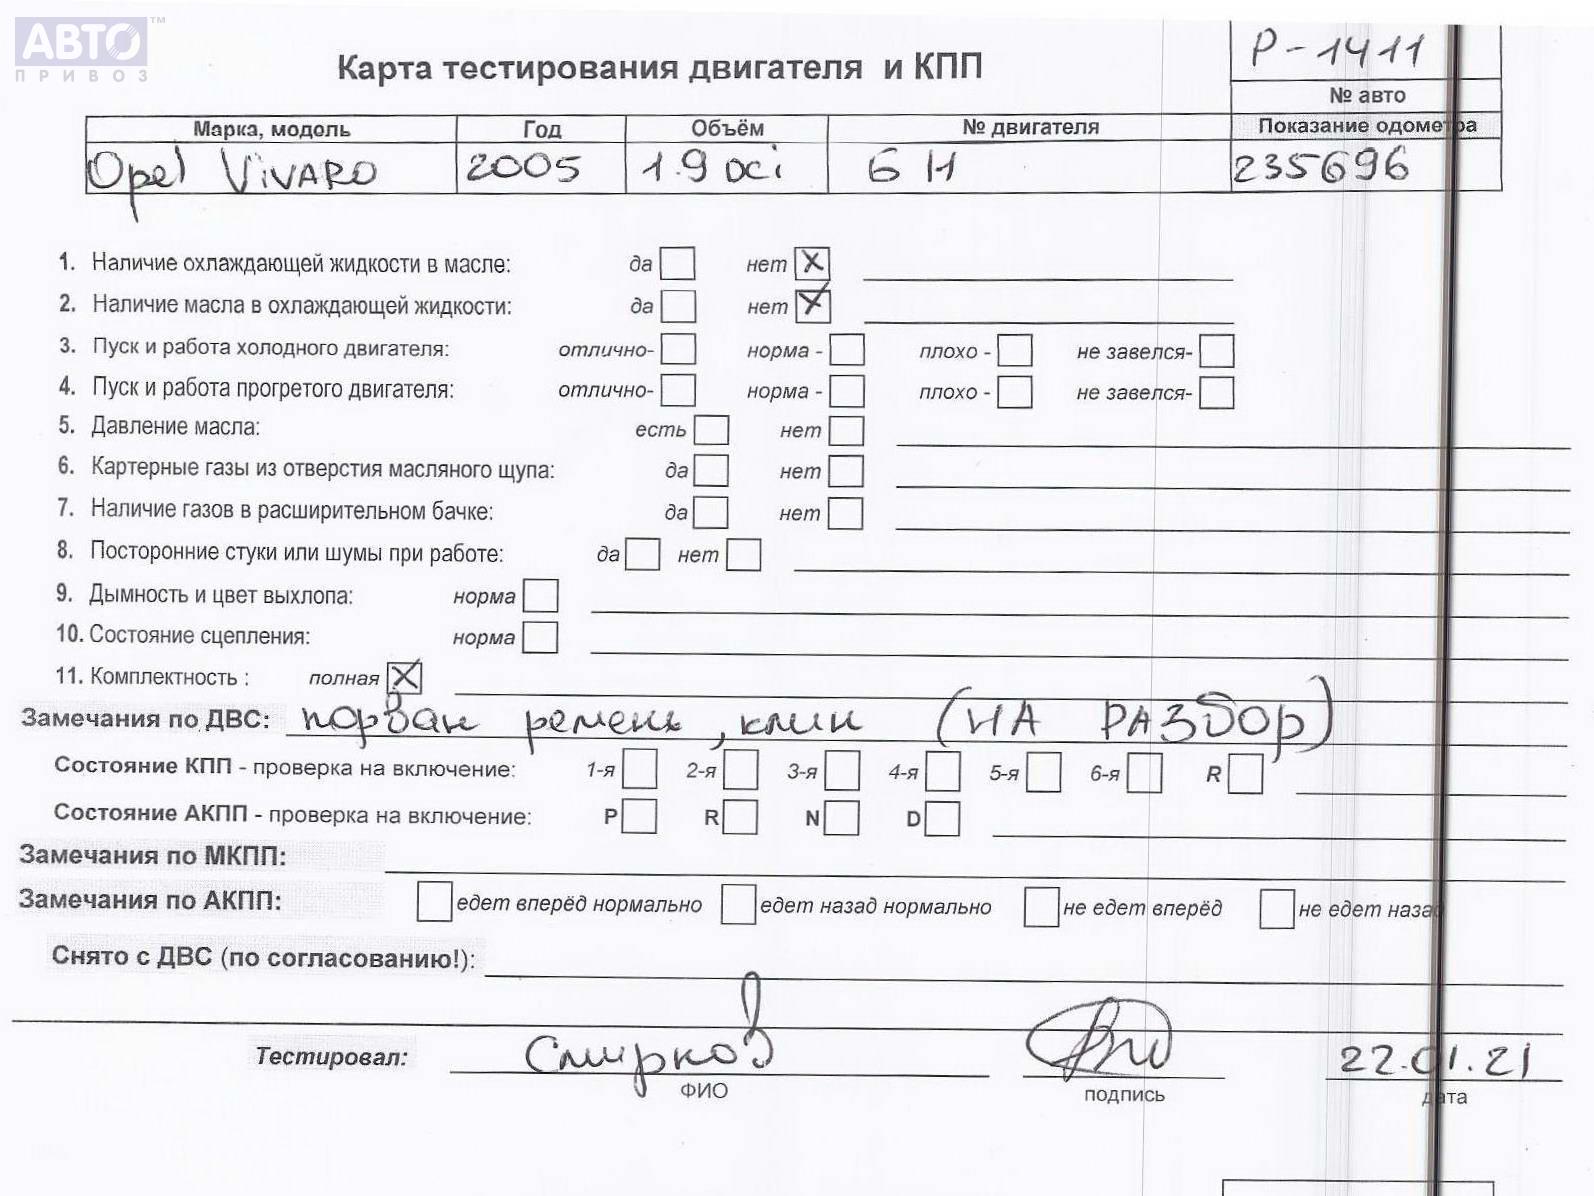 АВТО™
ПРИВОЗ
Карта тестирования двигателя и КПП
Р-1411
№ авто
Марка, модель Год Объём № двигателя Показание одометра
Opel VIVARO 2005 1.9 DCI 6 Н 235696
1. Наличие охлаждающей жидкости в масле: да нет X
2. Наличие масла в охлаждающей жидкости: да нет X
3. Пуск и работа холодного двигателя: отлично- норма - плохо - не завелся-
4. Пуск и работа прогретого двигателя: отлично- норма - плохо - не завелся-
5. Давление масла: есть нет
6. Картерные газы из отверстия масляного щупа: да нет
7. Наличие газов в расширительном бачке: да нет
8. Посторонние стуки или шумы при работе: да нет
9. Дымность и цвет выхлопа: норма
10. Состояние сцепления: норма
11. Комплектность : полная X
Замечания по ДВС: порван ремень, клин (НА РАЗБОР)
Состояние КПП - проверка на включение: 1-я 2-я 3-я 4-я 5-я 6-я R
Состояние АКПП - проверка на включение: P R N D
Замечания по МКПП:
Замечания по АКПП: едет вперёд нормально едет назад нормально не едет вперёд не едет назад
Снято с ДВС (по согласованию!):
Тестировал: Смирнов 22.01.21
ФИО подпись дата